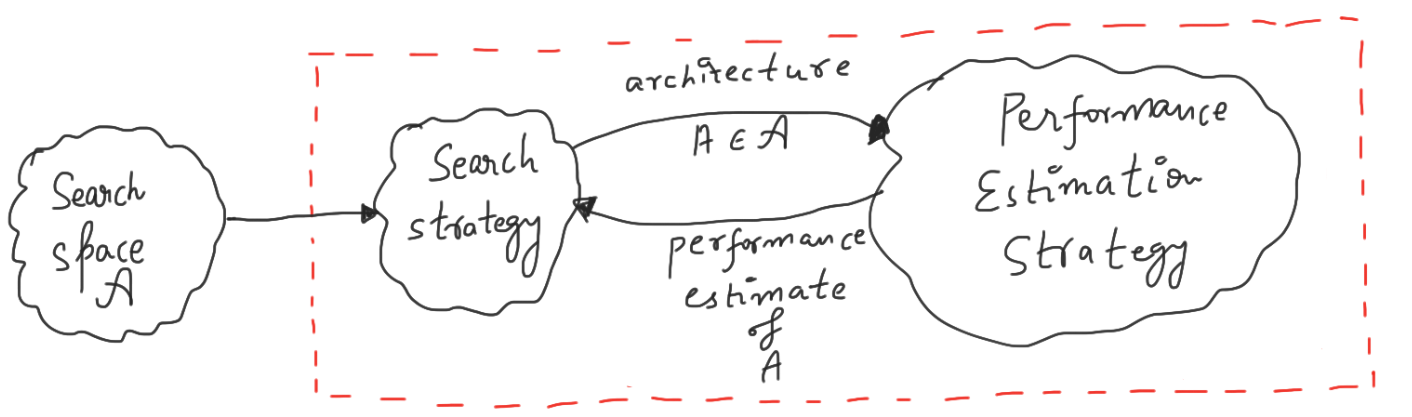 Search
space
A
Search
strategy
architecture
A ∈ A
performance
estimate
of
A
Performance
Estimation
Strategy